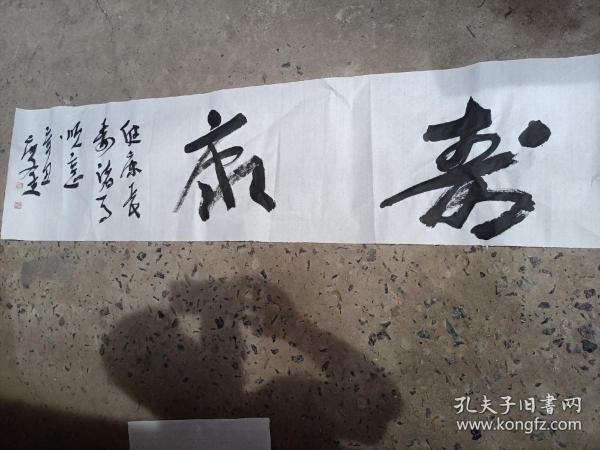 寿康
健康长
寿诸事
顺意
孔夫子旧书网
www.kongfz.com